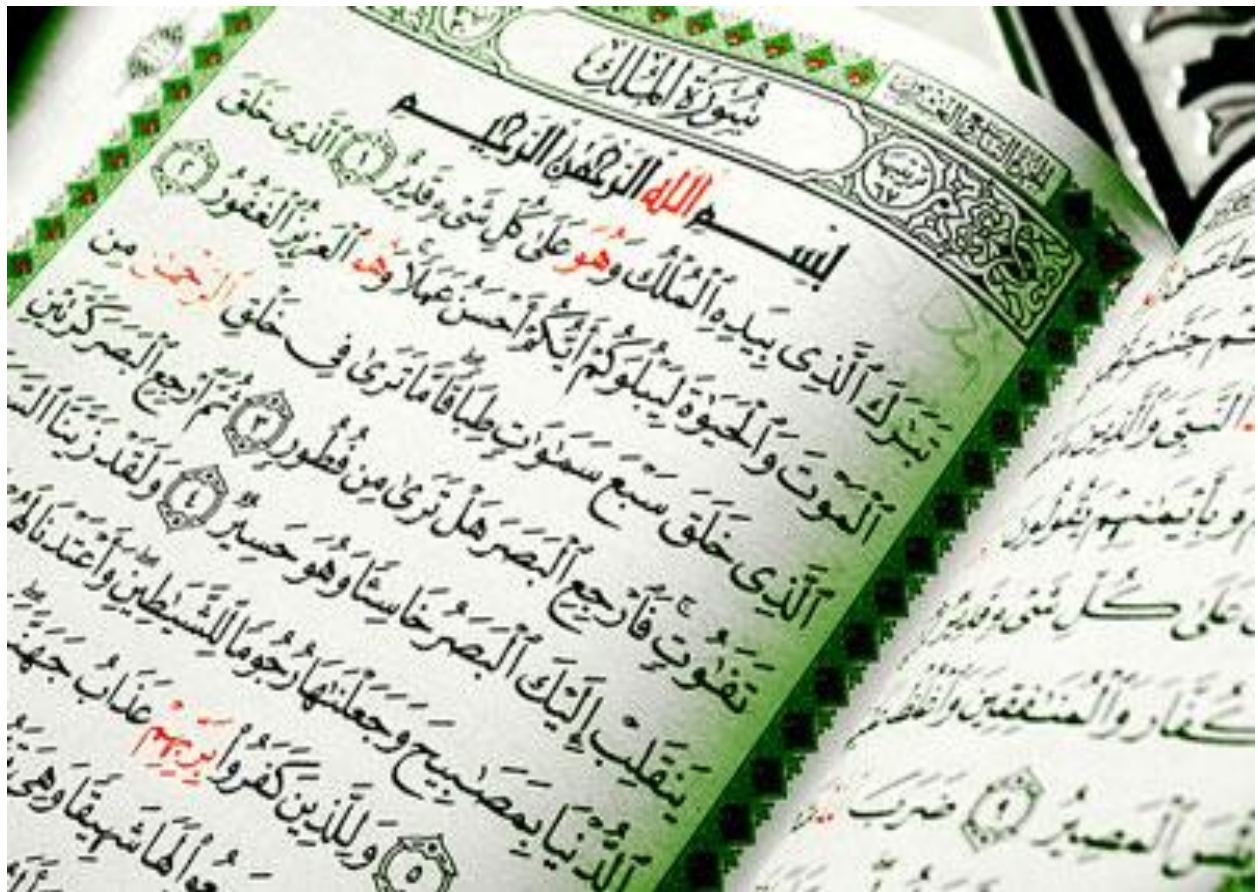 سُورَةُ المُلْكِ
بِسْمِ اللَّهِ الرَّحْمَٰنِ الرَّحِيمِ
تَبَٰرَكَ ٱلَّذِى بِيَدِهِ ٱلْمُلْكُ وَهُوَ عَلَىٰ كُلِّ شَىْءٍ قَدِيرٌ ١ ٱلَّذِى خَلَقَ
ٱلْمَوْتَ وَٱلْحَيَوٰةَ لِيَبْلُوَكُمْ أَيُّكُمْ أَحْسَنُ عَمَلًا وَهُوَ ٱلْعَزِيزُ ٱلْغَفُورُ ٢
ٱلَّذِى خَلَقَ سَبْعَ سَمَٰوَٰتٍ طِبَاقًا مَّا تَرَىٰ فِى خَلْقِ ٱلرَّحْمَٰنِ مِن
تَفَٰوُتٍ فَٱرْجِعِ ٱلْبَصَرَ هَلْ تَرَىٰ مِن فُطُورٍ ٣ ثُمَّ ٱرْجِعِ ٱلْبَصَرَ كَرَّتَيْنِ
يَنقَلِبْ إِلَيْكَ ٱلْبَصَرُ خَاسِئًا وَهُوَ حَسِيرٌ ٤ وَلَقَدْ زَيَّنَّا
ٱلدُّنْيَا بِمَصَٰبِيحَ وَجَعَلْنَٰهَا رُجُومًا لِّلشَّيَٰطِينِ وَأَعْتَدْنَا لَهُمْ
٥ وَلِلَّذِينَ كَفَرُوا۟ بِرَبِّهِمْ عَذَابُ
لَهَا شَهِيقًا وَهِىَ
ٱلنَّبِىَّ وَٱلَّذِينَ
وَبِأَيْمَٰنِهِمْ يَقُولُونَ
عَلَىٰ كُلِّ شَىْءٍ قَدِيرٌ
وَٱلْمُنَٰفِقِينَ وَٱغْلُظْ
ٱلْمَصِيرُ ٩ ضَرَبَ